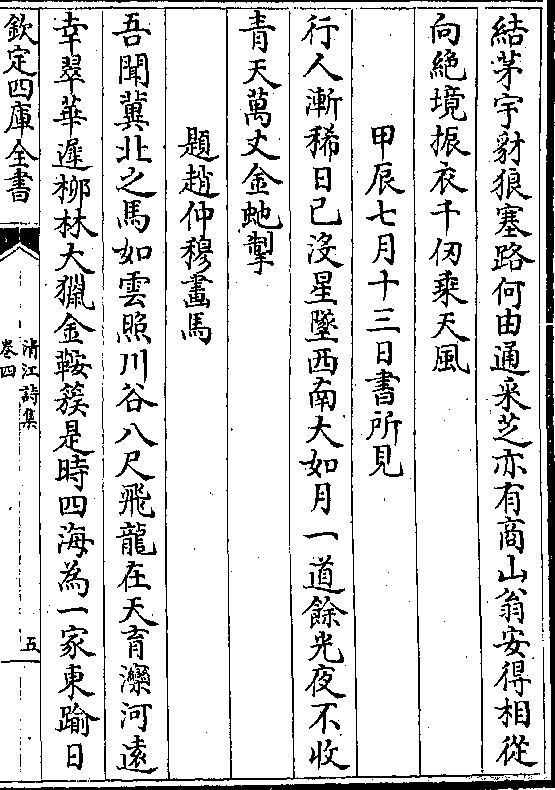 結茅宇豺狼塞路何由通采芝亦有商山翁安得相從
向絶境振衣千仞乗天風
甲辰七月十三日書所見
行人漸稀日已没星墜西南大如月一道餘光夜不收
青天萬丈金虵掣
題趙仲穆畫馬
吾聞冀北之馬如雲照川谷八尺飛龍在天育灤河逺
幸翠華遲栁林大獵金鞍簇是時四海為一家東踰日
欽定四庫全書
清江詩集
卷四
五